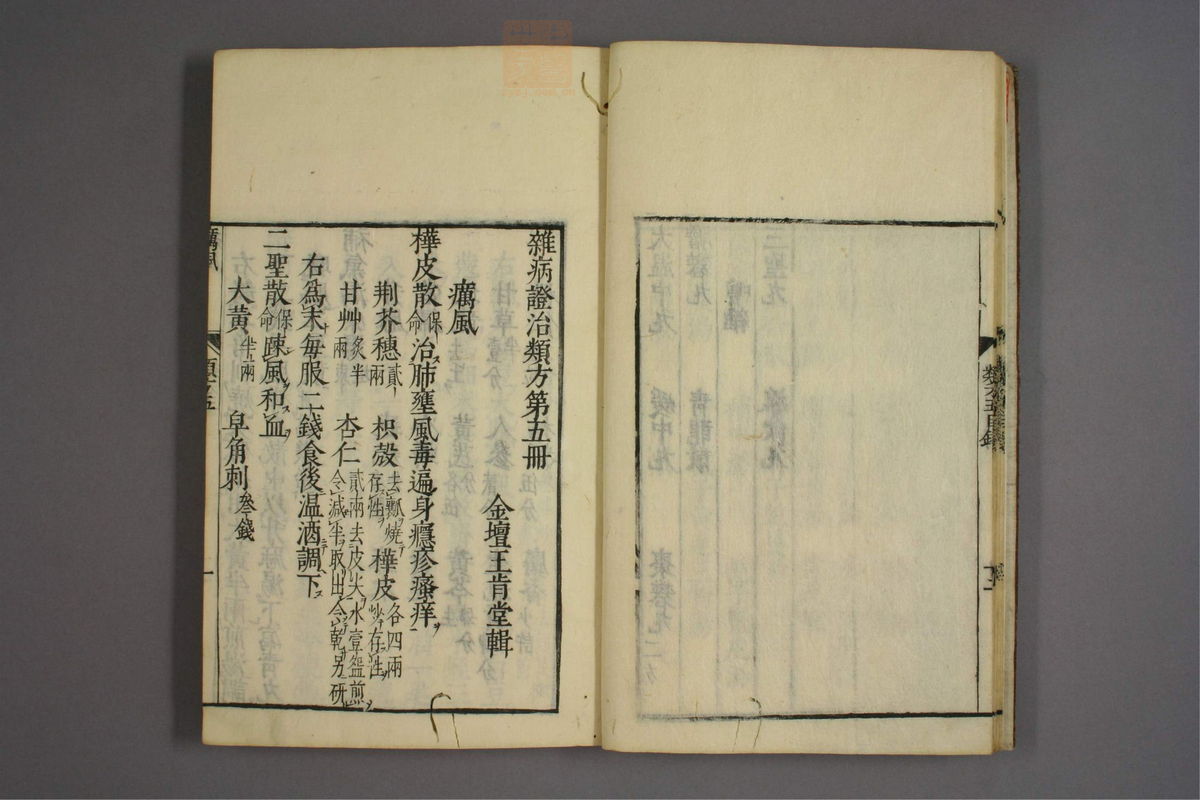 雜病證治類方第五冊
金壇王肯堂輯
癘風
樺皮散保命治肺壅風毒遍身癮疹瘙痒
荆芥穗貳兩 枳殼去瓤燒存性 樺皮各四兩炒存性
甘艸炙半兩 杏仁貳兩去皮尖水壹盌煎令減半取出令乾另研
右爲末每服二錢食後温酒調下
二聖散保命踈風和血
大黄半兩 皁角刺叄錢